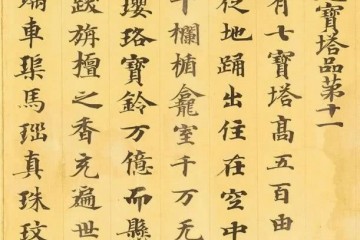 寶塔品第十一
有七寶塔高五百由
從地踊出住在空中
千欄楯龕室千万无
瓔珞寶鈴万億而懸
跋旃檀之香充遍世
璃車渠馬瑙真珠玫